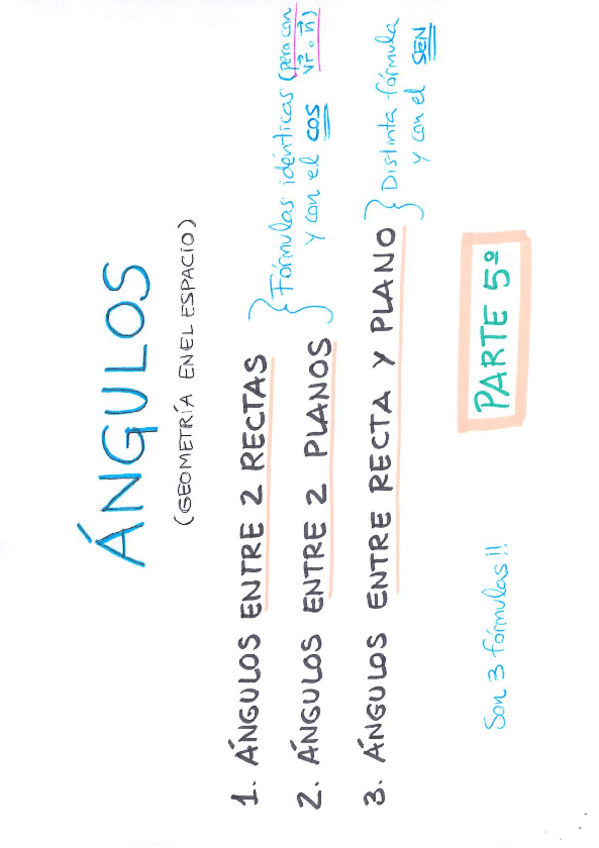 ÁNGULOS
(GEOMETRÍA EN EL ESPACIO)
1. ÁNGULOS ENTRE 2 RECTAS
2. ÁNGULOS ENTRE 2 PLANOS
Fórmulas idénticas (pero con
v⃗r o n⃗)
y con el COS
3. ÁNGULOS ENTRE RECTA Y PLANO
Distinta fórmula
y con el SEN
Son 3 fórmulas!!
PARTE 5º